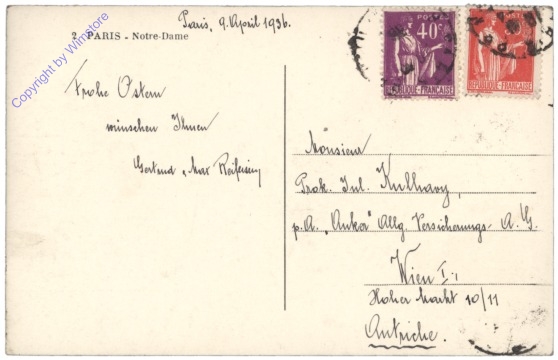 Paris, 9. April 1936.
2 PARIS - Notre-Dame
Copyright by Winstore
POSTES
40c
REPUBLIQUE-FRANCAISE
REPUBLIQUE-FRANCAISE
Frohe Ostern
wünschen Ihnen
Gertrud u. Max
Monsieur
Prok. Jul. Kulhavy,
p. A. „Anker" Allg. Versicherungs-A.G.
Wien I.,
Hoher Markt 10/11
Autriche.